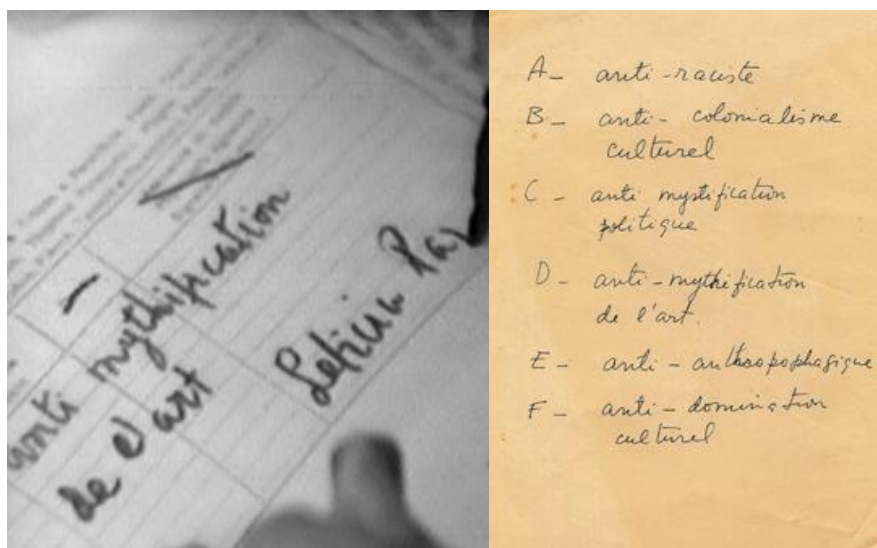 anti mythification
de l'art
Leticia Pa
A_ anti-raciste
B_ anti-colonialisme
culturel
C - anti mystification
politique
D - anti-mythification
de l'art.
E - anti-anthropophagique
F - anti-domination
culturel